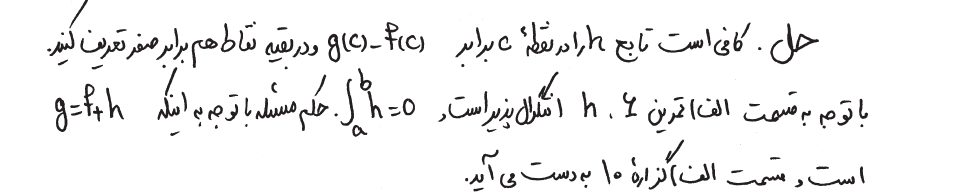 حل. کافی است تابع h را در نقطهٔ c برابر g(c)-f(c) و در بقیه نقاط هم برابر صفر تعریف کنید.
با توجه به قسمت الف) تمرین ۴، h انتگرال پذیر است و ∫_a^b h=0. حکم مسئله با توجه به اینکه g=f+h
است و قسمت الف) گزارهٔ ۱۰ به دست می آید.